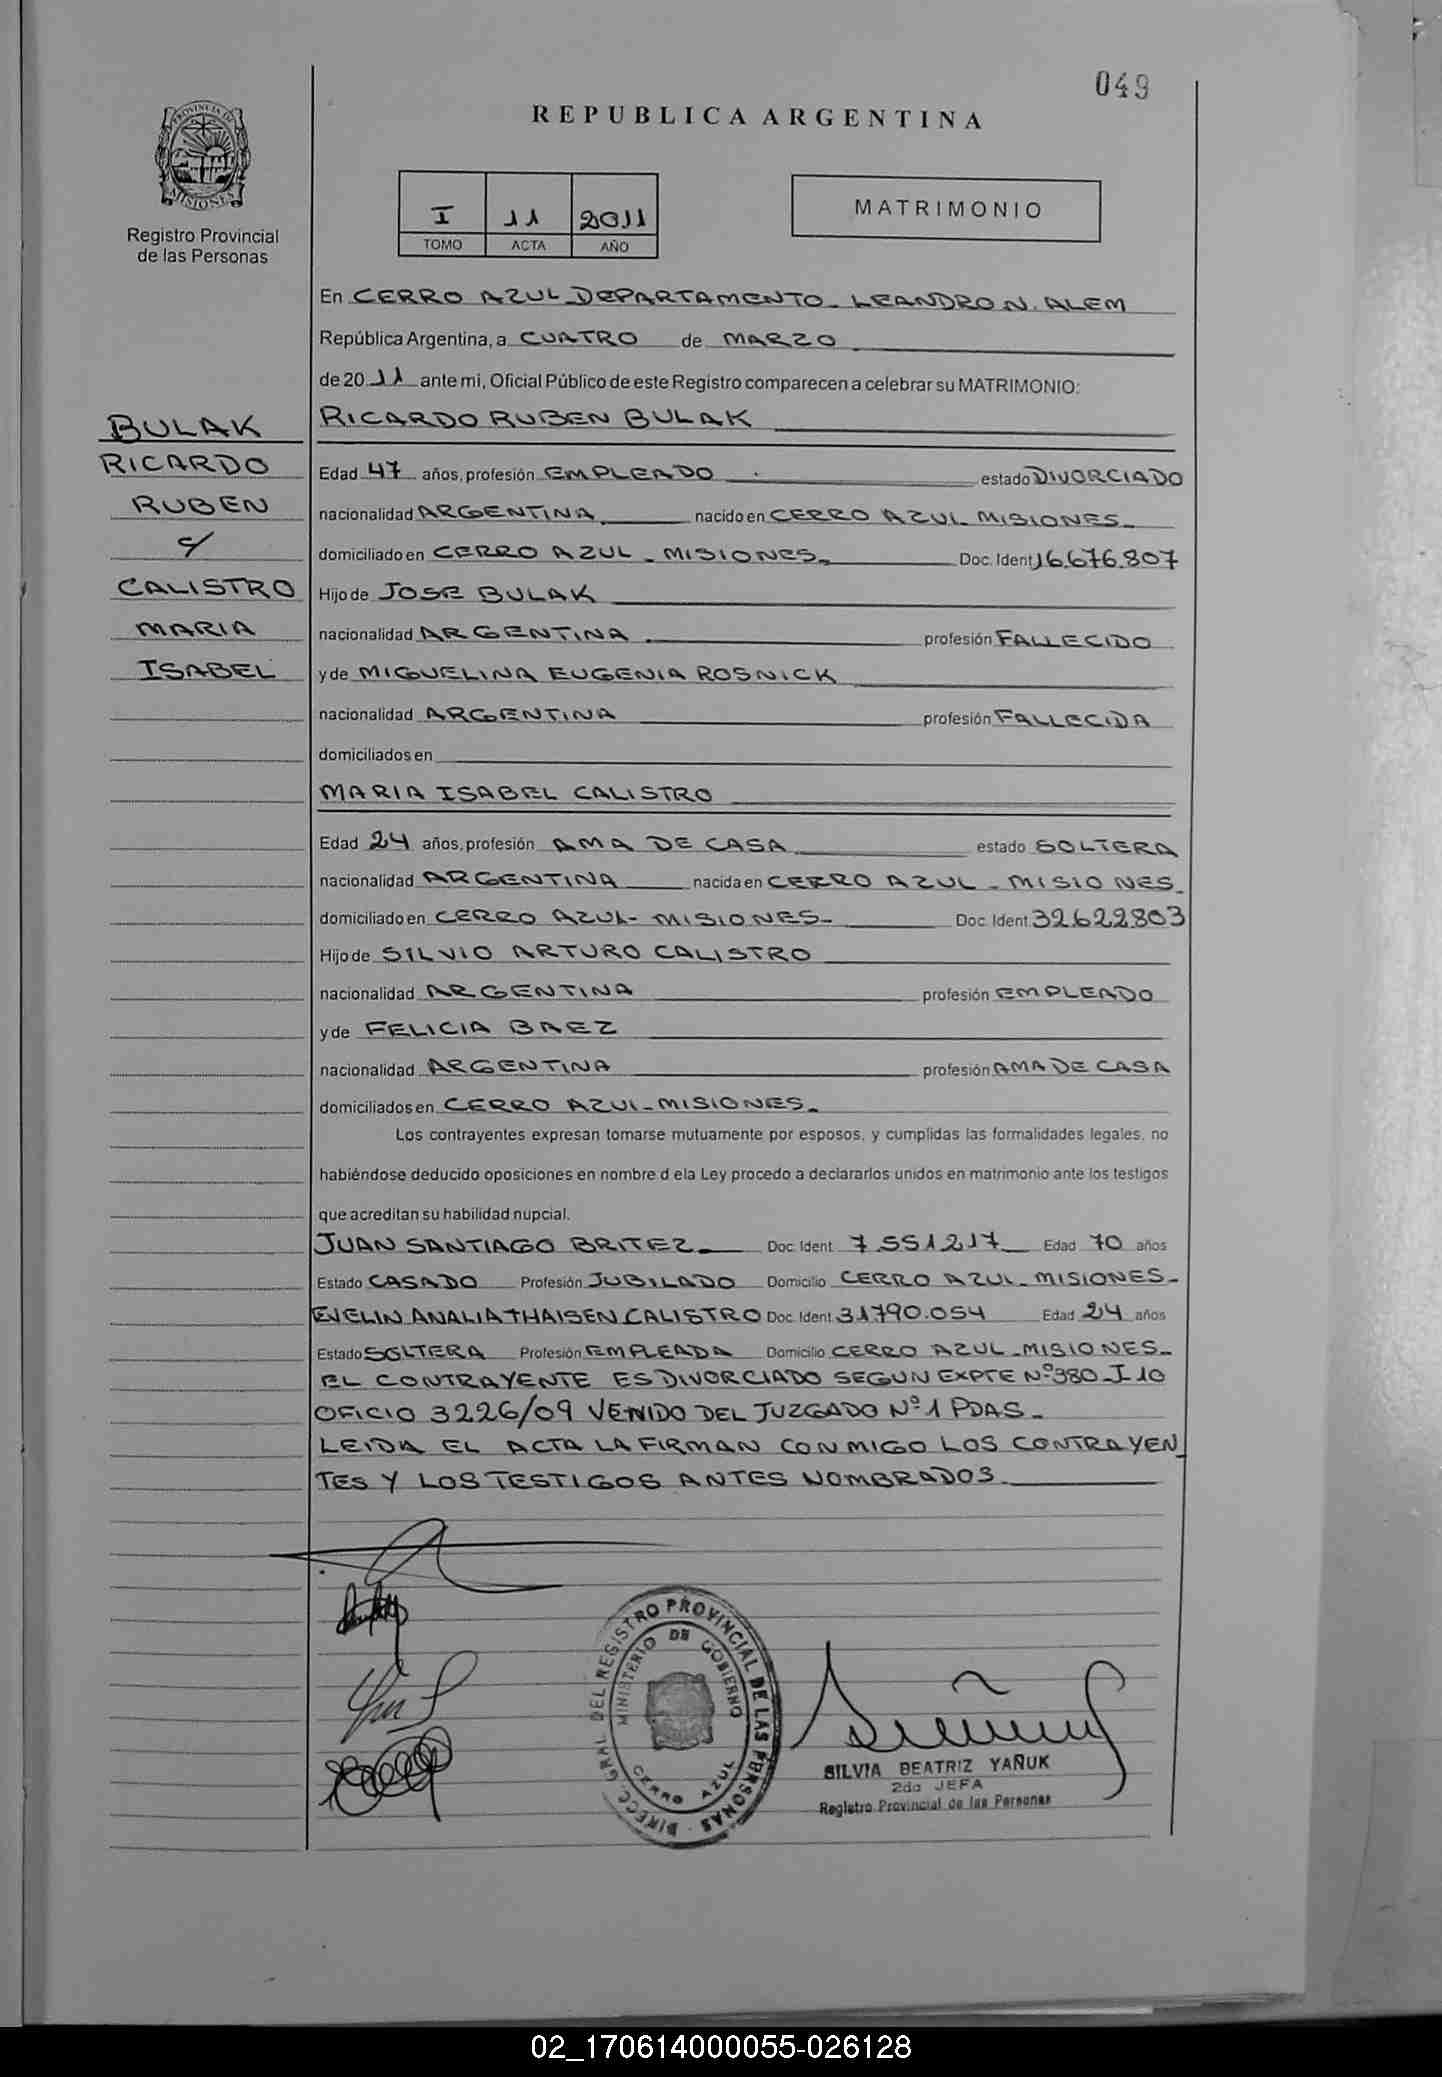 049
REPUBLICA ARGENTINA
PROVINCIA DE
MISIONES
Registro Provincial
de las Personas
I 11 2011
TOMO ACTA AÑO
MATRIMONIO
En CERRO AZUL DEPARTAMENTO - LEANDRO N. ALEM
República Argentina, a CUATRO de MARZO
de 20 11 ante mi, Oficial Público de este Registro comparecen a celebrar su MATRIMONIO:
BULAK
RICARDO
RUBEN
c/
CALISTRO
MARIA
ISABEL
RICARDO RUBEN BULAK
Edad 47 años, profesión EMPLEADO estado DIVORCIADO
nacionalidad ARGENTINA nacido en CERRO AZUL MISIONES-
domiciliado en CERRO AZUL - MISIONES- Doc. Ident 16.676.807
Hijo de JOSE BULAK
nacionalidad ARGENTINA profesión FALLECIDO
y de MIGUELINA EUGENIA ROSNICK
nacionalidad ARGENTINA profesión FALLECIDA
domiciliados en
MARIA ISABEL CALISTRO
Edad 24 años, profesión AMA DE CASA estado SOLTERA
nacionalidad ARGENTINA nacida en CERRO AZUL - MISIONES-
domiciliado en CERRO AZUL - MISIONES- Doc. Ident 32.622.803
Hijo de SILVIO ARTURO CALISTRO
nacionalidad ARGENTINA profesión EMPLEADO
y de FELICIA BAEZ
nacionalidad ARGENTINA profesión AMA DE CASA
domiciliados en CERRO AZUL - MISIONES-
Los contrayentes expresan tomarse mutuamente por esposos, y cumplidas las formalidades legales, no
habiéndose deducido oposiciones en nombre d ela Ley procedo a declararlos unidos en matrimonio ante los testigos
que acreditan su habilidad nupcial.
JUAN SANTIAGO BRITEZ- Doc. Ident 7.551.217 Edad 70 años
Estado CASADO Profesión JUBILADO Domicilio CERRO AZUL - MISIONES-
EVELIN ANALIA THAISEN CALISTRO Doc. Ident 31.790.054 Edad 24 años
Estado SOLTERA Profesión EMPLEADA Domicilio CERRO AZUL - MISIONES-
EL CONTRAYENTE ES DIVORCIADO SEGUN EXPTE Nº 380-I-10
OFICIO 3226/09 VENIDO DEL JUZGADO Nº 1 PDAS-
LEIDA EL ACTA LA FIRMAN CONMIGO LOS CONTRAYEN-
TES Y LOS TESTIGOS ANTES NOMBRADOS
DIRECC. GRAL. DEL REGISTRO PROVINCIAL DE LAS PERSONAS
MINISTERIO DE GOBIERNO
CERRO AZUL
SILVIA BEATRIZ YAÑUK
2da JEFA
Registro Provincial de las Personas
02_170614000055-026128